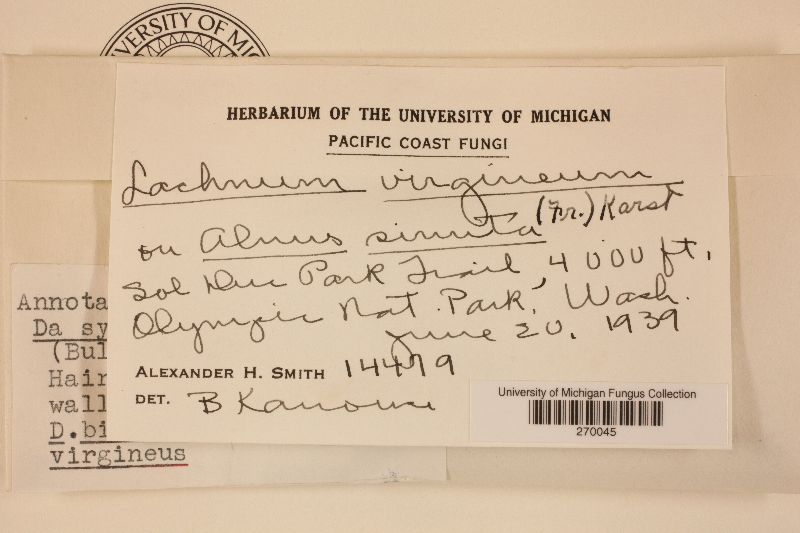 VERSITY OF MI
HERBARIUM OF THE UNIVERSITY OF MICHIGAN
PACIFIC COAST FUNGI
Lachnum virgineum
(Fr.) Karst
on Alnus sinuata
Sol Duc Park Trail, 4000 ft,
Olympic Nat. Park, Wash.
June 20, 1939
ALEXANDER H. SMITH 14479
DET. B Kanouse
University of Michigan Fungus Collection
270045
Annota
Da sy
(Bul
Hair
wall
D.bi
virgineus